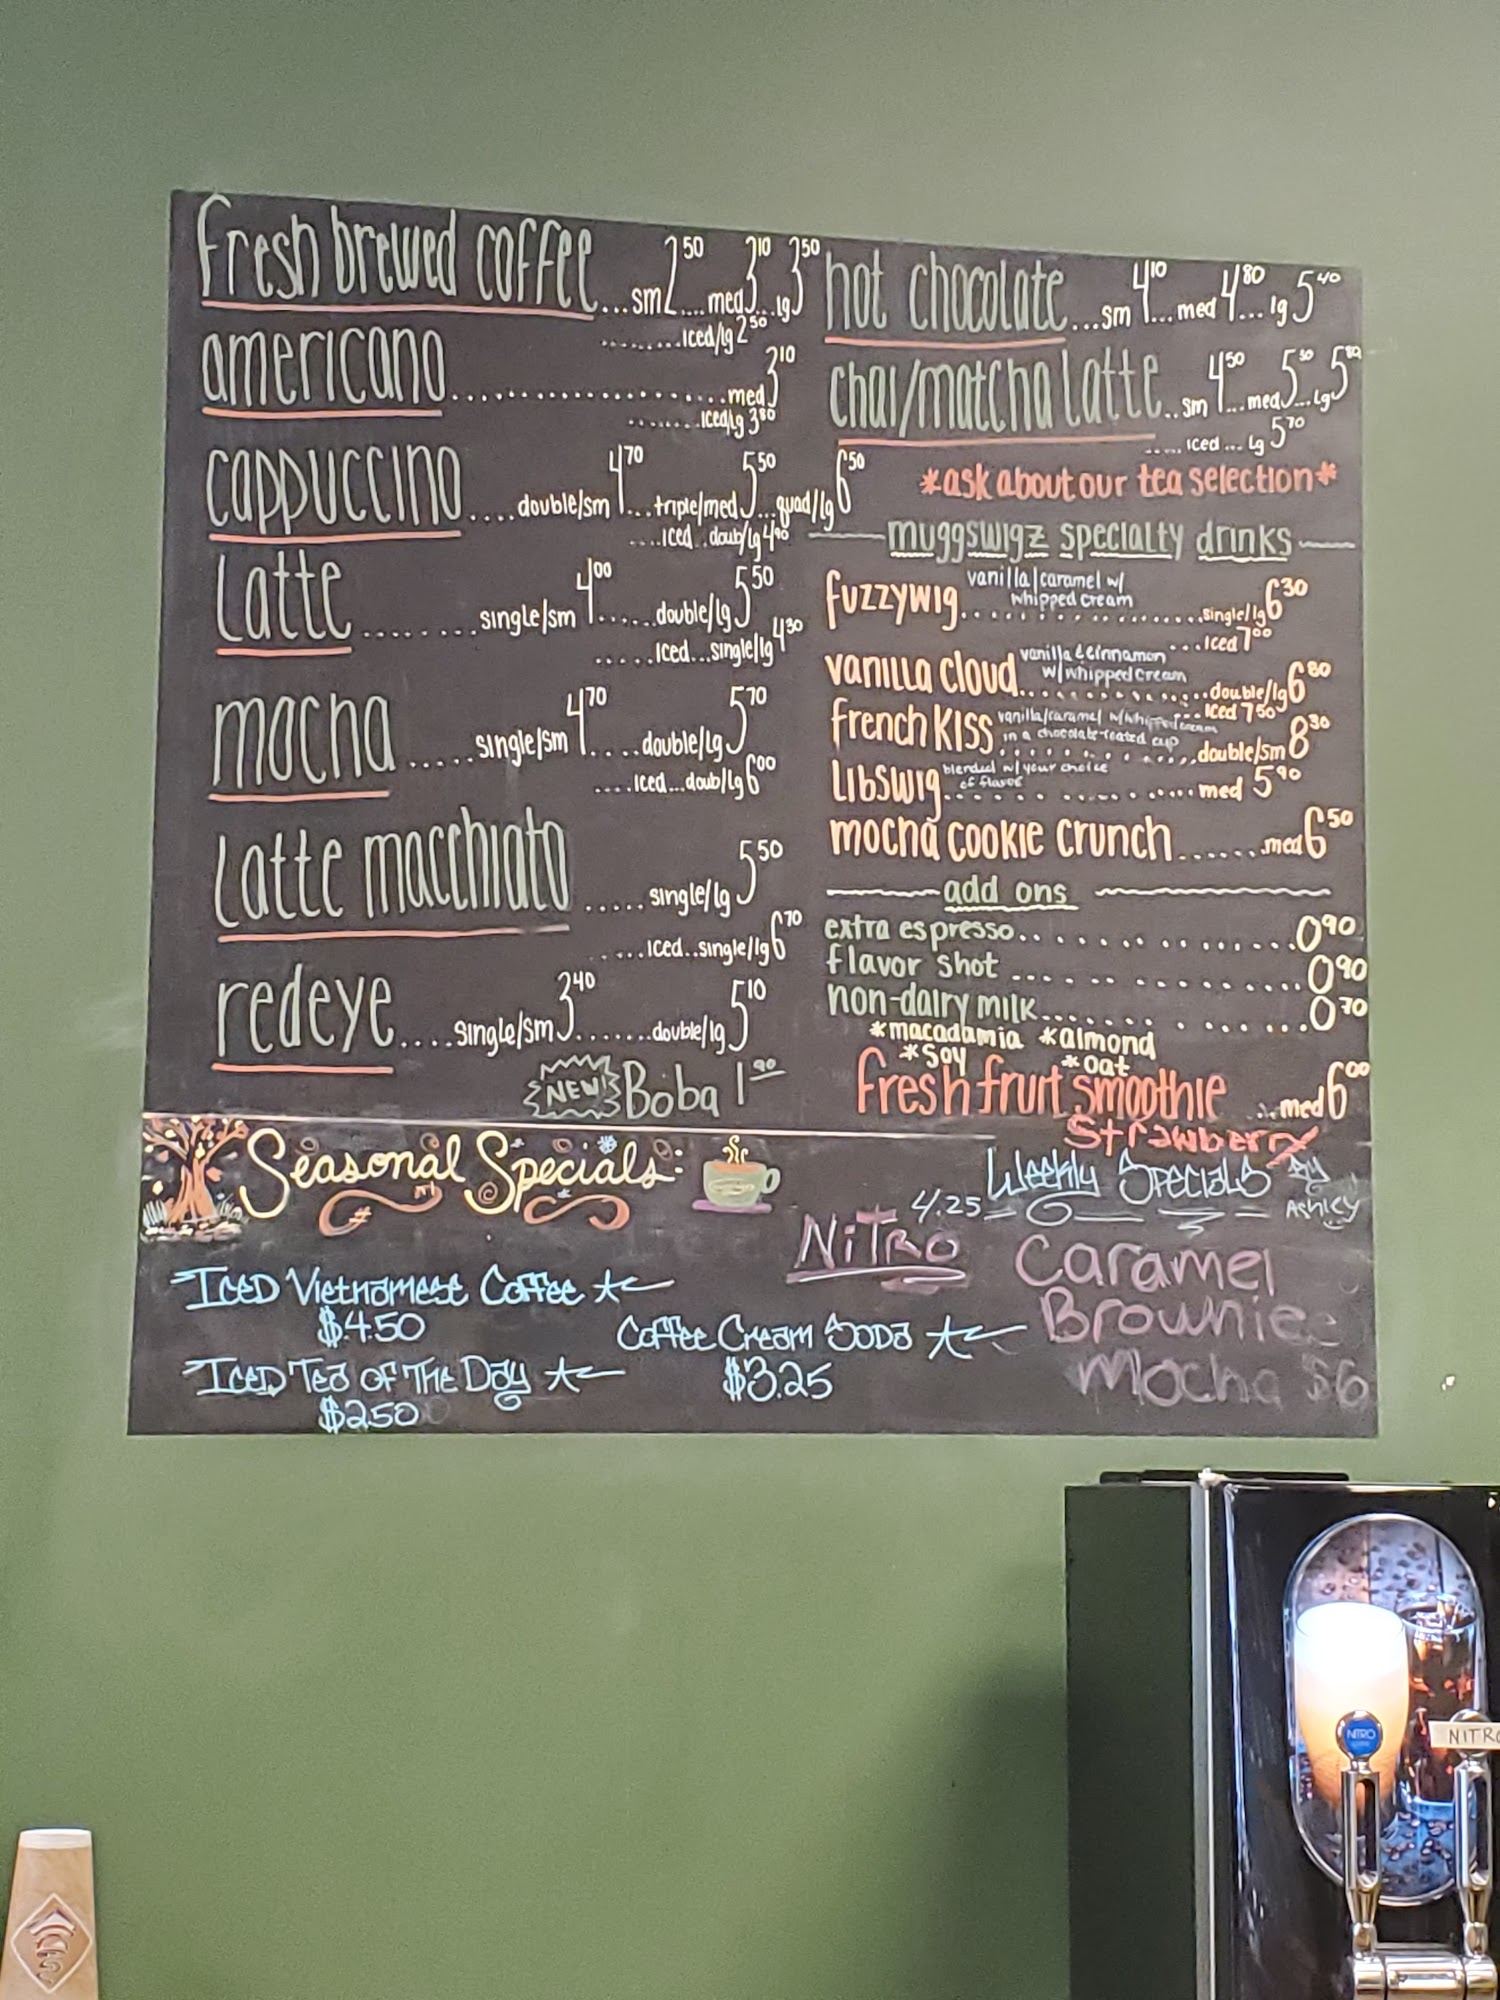 fresh brewed coffee...sm 2 50....med 3 10...lg 3 50
.........iced/lg 2 50
americano......................med 3 10
........iced/lg 3 80
cappuccino....double/sm 4 70...triple/med 5 50...quad/lg 6 50
....iced..doub/lg 4 90
Latte........single/sm 4 00......double/lg 5 50
.....iced...single/lg 4 30
mocha.....single/sm 4 70.....double/lg 5 70
....iced...doub/lg 6 00
Latte macchiato.....single/lg 5 50
.....iced..single/lg 6 70
redeye....single/sm 3 40.......double/lg 5 10
NEW! Boba 1 90
hot chocolate...sm 4 10...med 4 80...lg 5 40
chai/matcha Latte..sm 4 50...med 5 30...lg 5 80
.....iced...lg 5 70
*ask about our tea selection*
muggswigz specialty drinks
fuzzywig vanilla/caramel w/
whipped cream
single/lg 6 30
...iced 7 00
vanilla cloud vanilla & cinnamon
w/whipped cream
double/lg 6 80
iced 7 50
french kiss vanilla/caramel w/whipped cream
in a chocolate-coated cup
double/sm 8 30
Libswig blended w/your choice
of flavor
med 5 90
mocha cookie crunch.......med 6 50
add ons
extra espresso................0 90
flavor shot................0 90
non-dairy milk..............0 70
*macadamia *almond
*soy *oat
fresh fruit smoothie ...med 6 00
Strawberry
Seasonal Specials:
Iced Vietnamese Coffee
$4.50
Iced Tea of The Day
$2.50
Coffee Cream Soda
$3.25
4.25
Nitro
Weekly Specials By
Ashley
Caramel
Brownie
Mocha $6
NITRO
NITRO